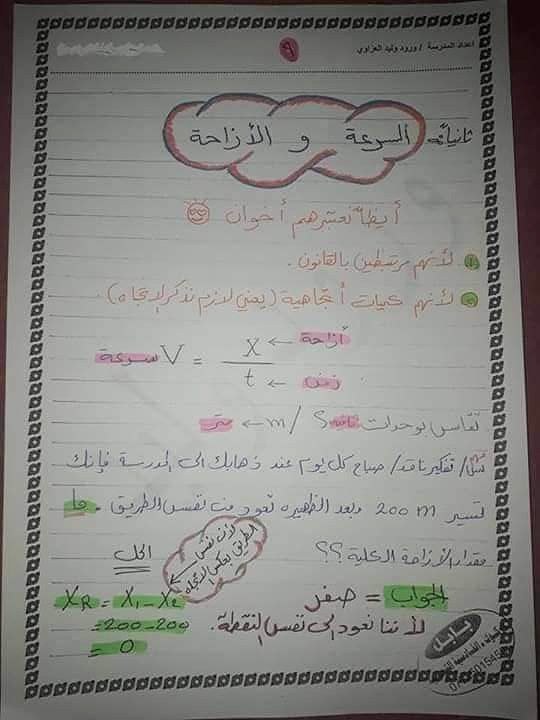 اعداد المدرسة / ورود وليد العزاوي
٩
ثانياً: السرعة و الأزاحة
أيظاً نعتبرهم أخوان
١. لأنهم مرتبطين بالقانون.
٢. لأنهم كميات أتجاهية (يعني لازم نذكر الاتجاه).
سرعة V = X / t
X ← أزاحة
t ← زمن
تقاس بوحدات m / s
m ← متر
s ثانية
س/ تفكير ناقد/ صباح كل يوم عند ذهابك الى المدرسة فإنك
تسير 200 m وبعد الظهيره تعود من نفس الطريق. ما
مقدار الأزاحة الكلية؟؟
الحل
لأن نفس الطريق بعكس الاتجاه
XR = X1 - X2
= 200 - 200
= 0
الجواب = صفر
لأننا نعود الى نفس النقطة.
بابل